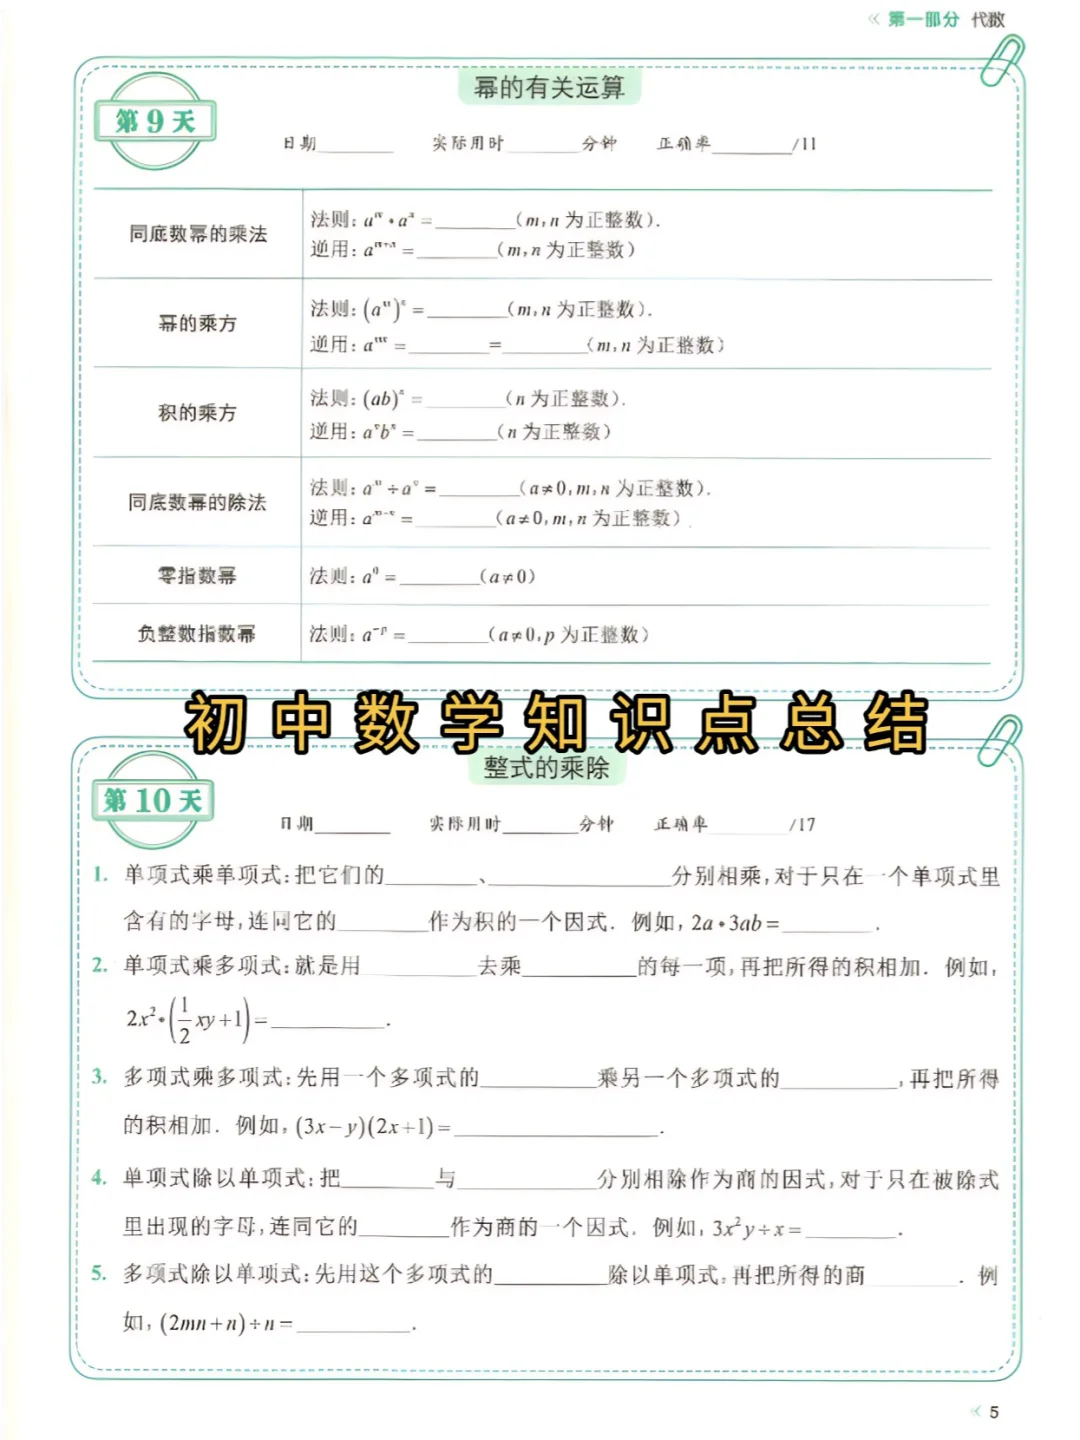 « 第一部分 代数
幂的有关运算
第9天
日期________ 实际用时________分钟 正确率________/11
同底数幂的乘法
法则:aᵐ•aⁿ=________(m,n为正整数).
逆用:aᵐ⁺ⁿ=________(m,n为正整数)
幂的乘方
法则:(aᵐ)ⁿ=________(m,n为正整数).
逆用:aᵐⁿ=________=________(m,n为正整数)
积的乘方
法则:(ab)ⁿ=________(n为正整数).
逆用:aⁿbⁿ=________(n为正整数)
同底数幂的除法
法则:aᵐ÷aⁿ=________(a≠0,m,n为正整数).
逆用:aᵐ⁻ⁿ=________(a≠0,m,n为正整数).
零指数幂
法则:a⁰=________(a≠0)
负整数指数幂
法则:a⁻ᵖ=________(a≠0,p为正整数)
初中数学知识点总结
整式的乘除
第10天
日期________ 实际用时________分钟 正确率________/17
1. 单项式乘单项式:把它们的________、________________分别相乘,对于只在一个单项式里
含有的字母,连同它的________作为积的一个因式. 例如,2a•3ab=________.
2. 单项式乘多项式:就是用__________去乘__________的每一项,再把所得的积相加. 例如,
2x²•(1/2xy+1)=__________.
3. 多项式乘多项式:先用一个多项式的__________乘另一个多项式的__________,再把所得
的积相加. 例如,(3x-y)(2x+1)=__________________.
4. 单项式除以单项式:把________与____________分别相除作为商的因式,对于只在被除式
里出现的字母,连同它的________作为商的一个因式. 例如,3x²y÷x=________.
5. 多项式除以单项式:先用这个多项式的__________除以单项式,再把所得的商________. 例
如,(2mn+n)÷n=__________.
« 5